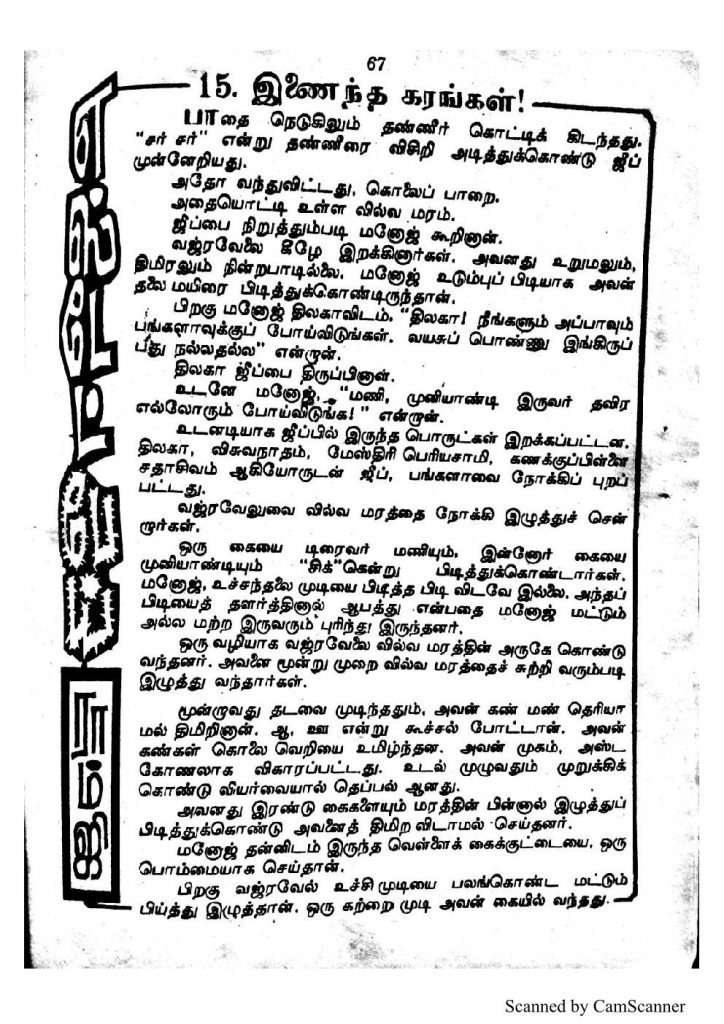 67
15. இணைந்த கரங்கள்!
பாதை நெடுகிலும் தண்ணீர் கொட்டிக் கிடந்தது.
“சர் சர்” என்று தண்ணீரை விசிறி அடித்துக்கொண்டு ஜீப்
முன்னேறியது.
அதோ வந்துவிட்டது, கொலைப் பாறை.
அதையொட்டி உள்ள வில்வ மரம்.
ஜீப்பை நிறுத்தும்படி மனோஜ் கூறினான்.
வஜ்ரவேலை கீழே இறக்கினார்கள். அவனது உறுமலும்,
திமிரலும் நின்றபாடில்லை. மனோஜ் உடும்புப் பிடியாக அவன்
தலை மயிரை பிடித்துக்கொண்டிருந்தான்.
பிறகு மனோஜ் திலகாவிடம், “திலகா! நீங்களும் அப்பாவும்
பங்களாவுக்குப் போய்விடுங்கள். வயசுப் பொண்ணு இங்கிருப்
பது நல்லதல்ல” என்றான்.
திலகா ஜீப்பை திருப்பினாள்.
உடனே மனோஜ், “மணி, முனியாண்டி இருவர் தவிர
எல்லோரும் போய்விடுங்க!” என்றான்.
உடனடியாக ஜீப்பில் இருந்த பொருட்கள் இறக்கப்பட்டன.
திலகா, விசுவநாதம், மேஸ்திரி பெரியசாமி, கணக்குப்பிள்ளை
சதாசிவம் ஆகியோருடன் ஜீப், பங்களாவை நோக்கிப் புறப்
பட்டது.
வஜ்ரவேலுவை வில்வ மரத்தை நோக்கி இழுத்துச் சென்
றார்கள்.
ஒரு கையை டிரைவர் மணியும், இன்னோர் கையை
முனியாண்டியும் “சிக்”கென்று பிடித்துக்கொண்டார்கள்.
மனோஜ், உச்சந்தலை முடியை பிடித்த பிடி விடவே இல்லை. அந்தப்
பிடியைத் தளர்த்தினால் ஆபத்து என்பதை மனோஜ் மட்டும்
அல்ல மற்ற இருவரும் புரிந்து இருந்தனர்.
ஒரு வழியாக வஜ்ரவேலை வில்வ மரத்தின் அருகே கொண்டு
வந்தனர். அவனை மூன்று முறை வில்வ மரத்தைச் சுற்றி வரும்படி
இழுத்து வந்தார்கள்.
மூன்றுவது தடவை முடிந்ததும், அவன் கண் மண் தெரியா
மல் திமிறினான். ஆ, ஊ என்று கூச்சல் போட்டான். அவன்
கண்கள் கொலை வெறியை உமிழ்ந்தன. அவன் முகம், அஸ்ட
கோணலாக விகாரப்பட்டது. உடல் முழுவதும் முறுக்கிக்
கொண்டு வியர்வையால் தெப்பல் ஆனது.
அவனது இரண்டு கைகளையும் மரத்தின் பின்னால் இழுத்துப்
பிடித்துக்கொண்டு அவனைத் திமிற விடாமல் செய்தனர்.
மனோஜ் தன்னிடம் இருந்த வெள்ளைக் கைக்குட்டையை, ஒரு
பொம்மையாக செய்தான்.
பிறகு வஜ்ரவேல் உச்சி முடியை பலங்கொண்ட மட்டும்
பிய்த்து இழுத்தான். ஒரு கற்றை முடி அவன் கையில் வந்தது.
Scanned by CamScanner